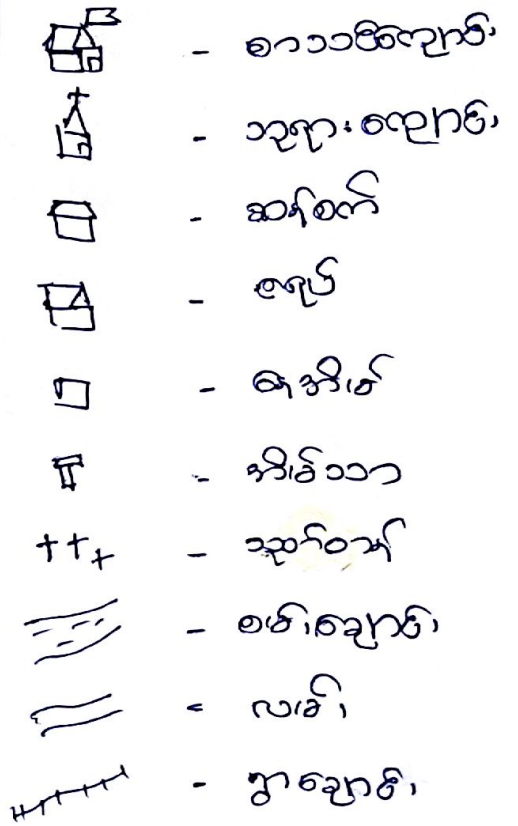 - စာသင်ကျောင်း
- ဘုရားကျောင်း
- ဆန်စက်
- ဇရပ်
- နေအိမ်
- အိမ်သာ
- စမ်းချောင်း
- လမ်း
- ရွာချောင်း